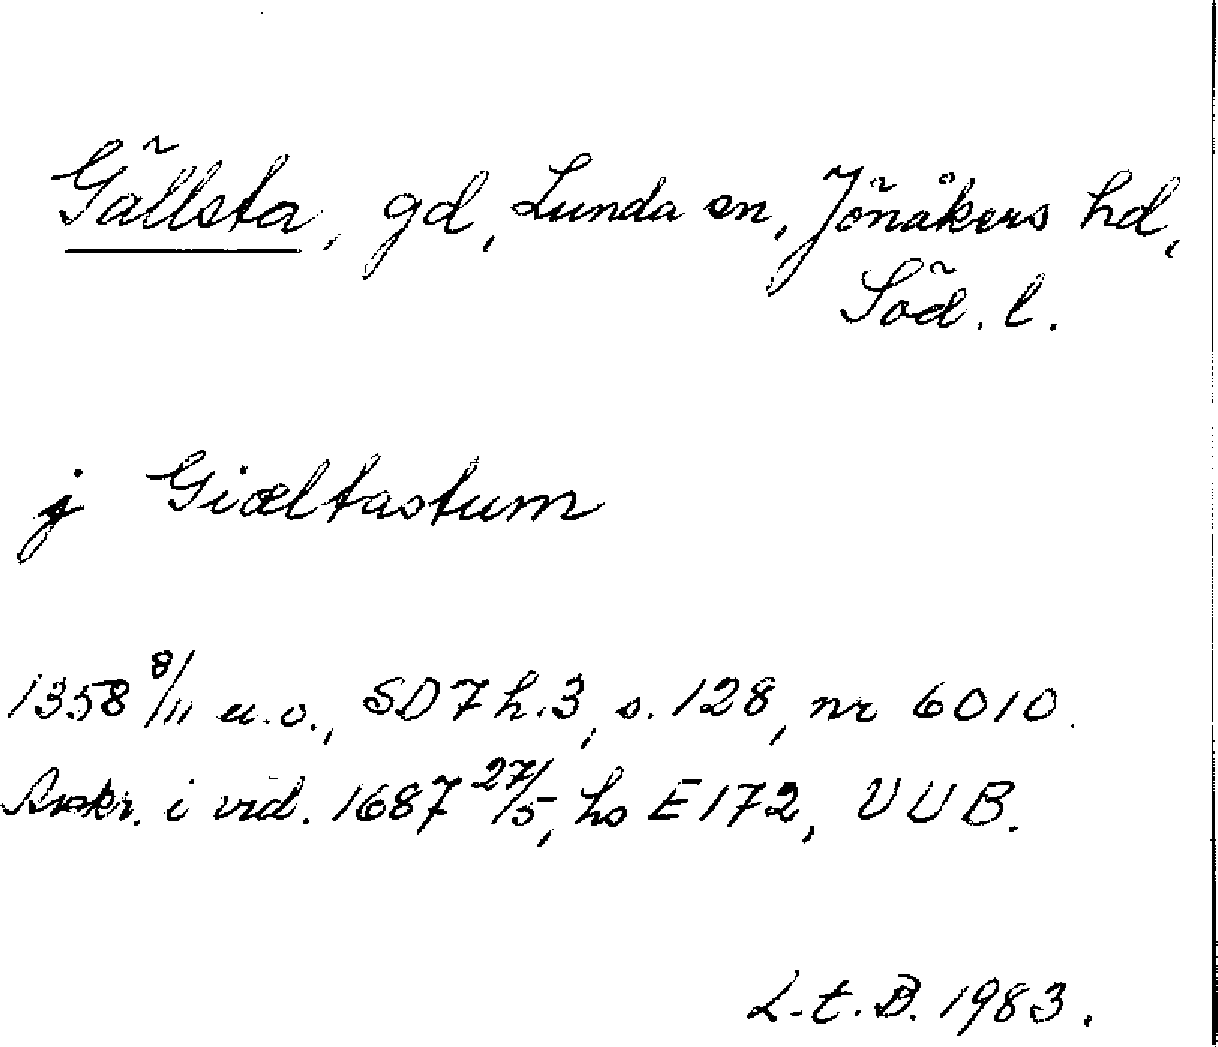 Gällsta, gd, Lunda sn, Jönåkers hd,
Söd. l.
j Giæltastum
1358 8/11 u.o., SD 7 h.3, s. 128, nr 6010.
Avskr. i vid. 1687 27/5, hs E 172, UUB.
L. t. B. 1983.